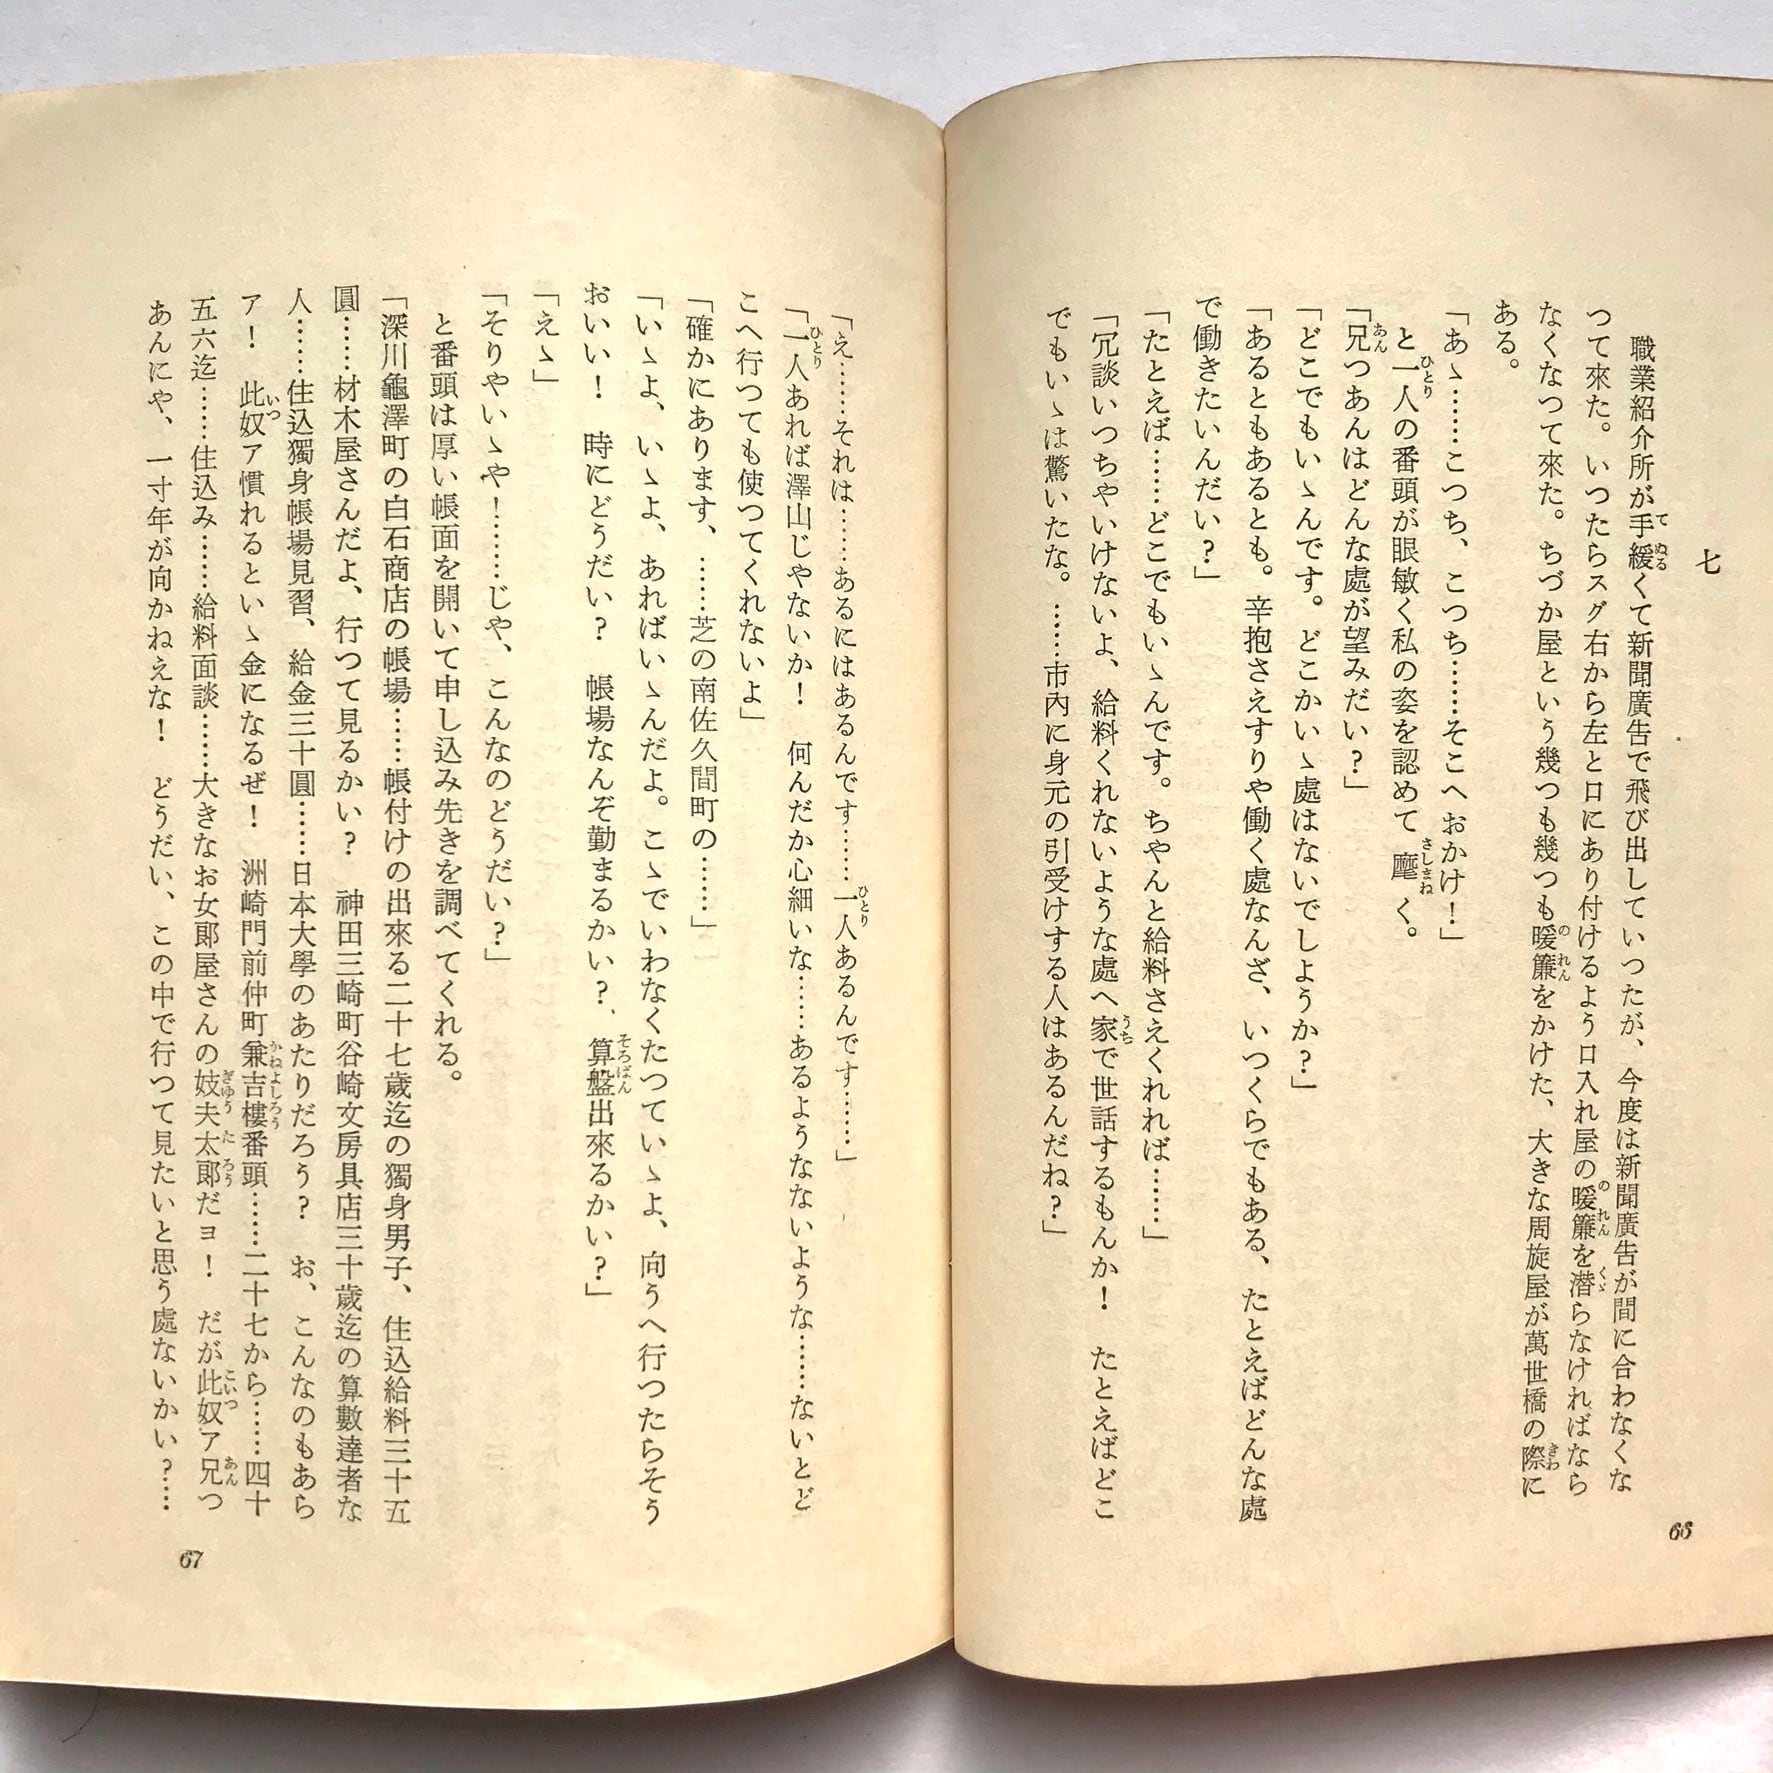 七
職業紹介所が手緩くて新聞廣告で飛び出していつたが、今度は新聞廣告が間に合わなくな
つて來た。いつたらスグ右から左と口にあり付けるよう口入れ屋の暖簾を潜らなければなら
なくなつて來た。ちづか屋という幾つも幾つも暖簾をかけた、大きな周旋屋が萬世橋の際に
ある。
「あゝ……こつち、こつち……そこへおかけ！」
と一人の番頭が眼敏く私の姿を認めて麾く。
「兄つあんはどんな處が望みだい？」
「どこでもいゝんです。どこかいゝ處はないでしようか？」
「あるともあるとも。辛抱さえすりや働く處なんざ、いつくらでもある、たとえばどんな處
で働きたいんだい？」
「たとえば……どこでもいゝんです。ちやんと給料さえくれれば……」
「冗談いつちやいけないよ、給料くれないような處へ家で世話するもんか！　たとえばどこ
でもいゝは驚いたな。……市內に身元の引受けする人はあるんだね？」
66
「え……それは……あるにはあるんです……一人あるんです……」
「一人あれば澤山じやないか！　何んだか心細いな……あるようなないような……ないとど
こへ行つても使つてくれないよ」
「確かにあります、……芝の南佐久間町の……」
「いゝよ、いゝよ、あればいゝんだよ。こゝでいわなくたつていゝよ、向うへ行つたらそう
おいい！　時にどうだい？　帳場なんぞ勤まるかい？　算盤出來るかい？」
「えゝ」
「そりやいゝや！……じや、こんなのどうだい？」
と番頭は厚い帳面を開いて申し込み先きを調べてくれる。
「深川龜澤町の白石商店の帳場……帳付けの出來る二十七歲迄の獨身男子、住込給料三十五
圓……材木屋さんだよ、行つて見るかい？　神田三崎町谷崎文房具店三十歲迄の算數達者な
人……住込獨身帳場見習、給金三十圓……日本大學のあたりだろう？　お、こんなのもあら
ア！　此奴ア慣れるといゝ金になるぜ！　洲崎門前仲町兼吉樓番頭……二十七から……四十
五六迄……住込み……給料面談……大きなお女郞屋さんの妓夫太郞だヨ！　だが此奴ア兄つ
あんにや、一寸年が向かねえな！　どうだい、この中で行つて見たいと思う處ないかい？……
67